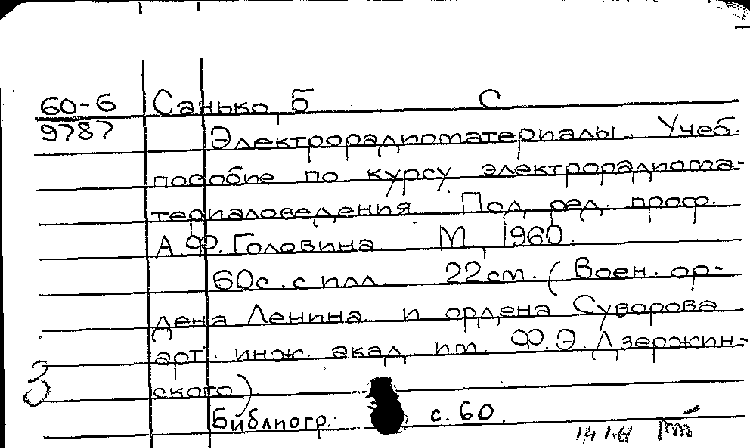 60-6 Санько, Б С
9787 Электрорадиоматериалы. Учеб.
пособие по курсу электрорадиома-
териаловедения. Под ред. проф.
А.Ф. Головина. М., 1960.
60с. с илл. 22см. (Воен. ор-
дена Ленина и ордена Суворова
арт. инж. акад. им. Ф.Э. Дзержин-
3 ского)
Библиогр.: с. 60.